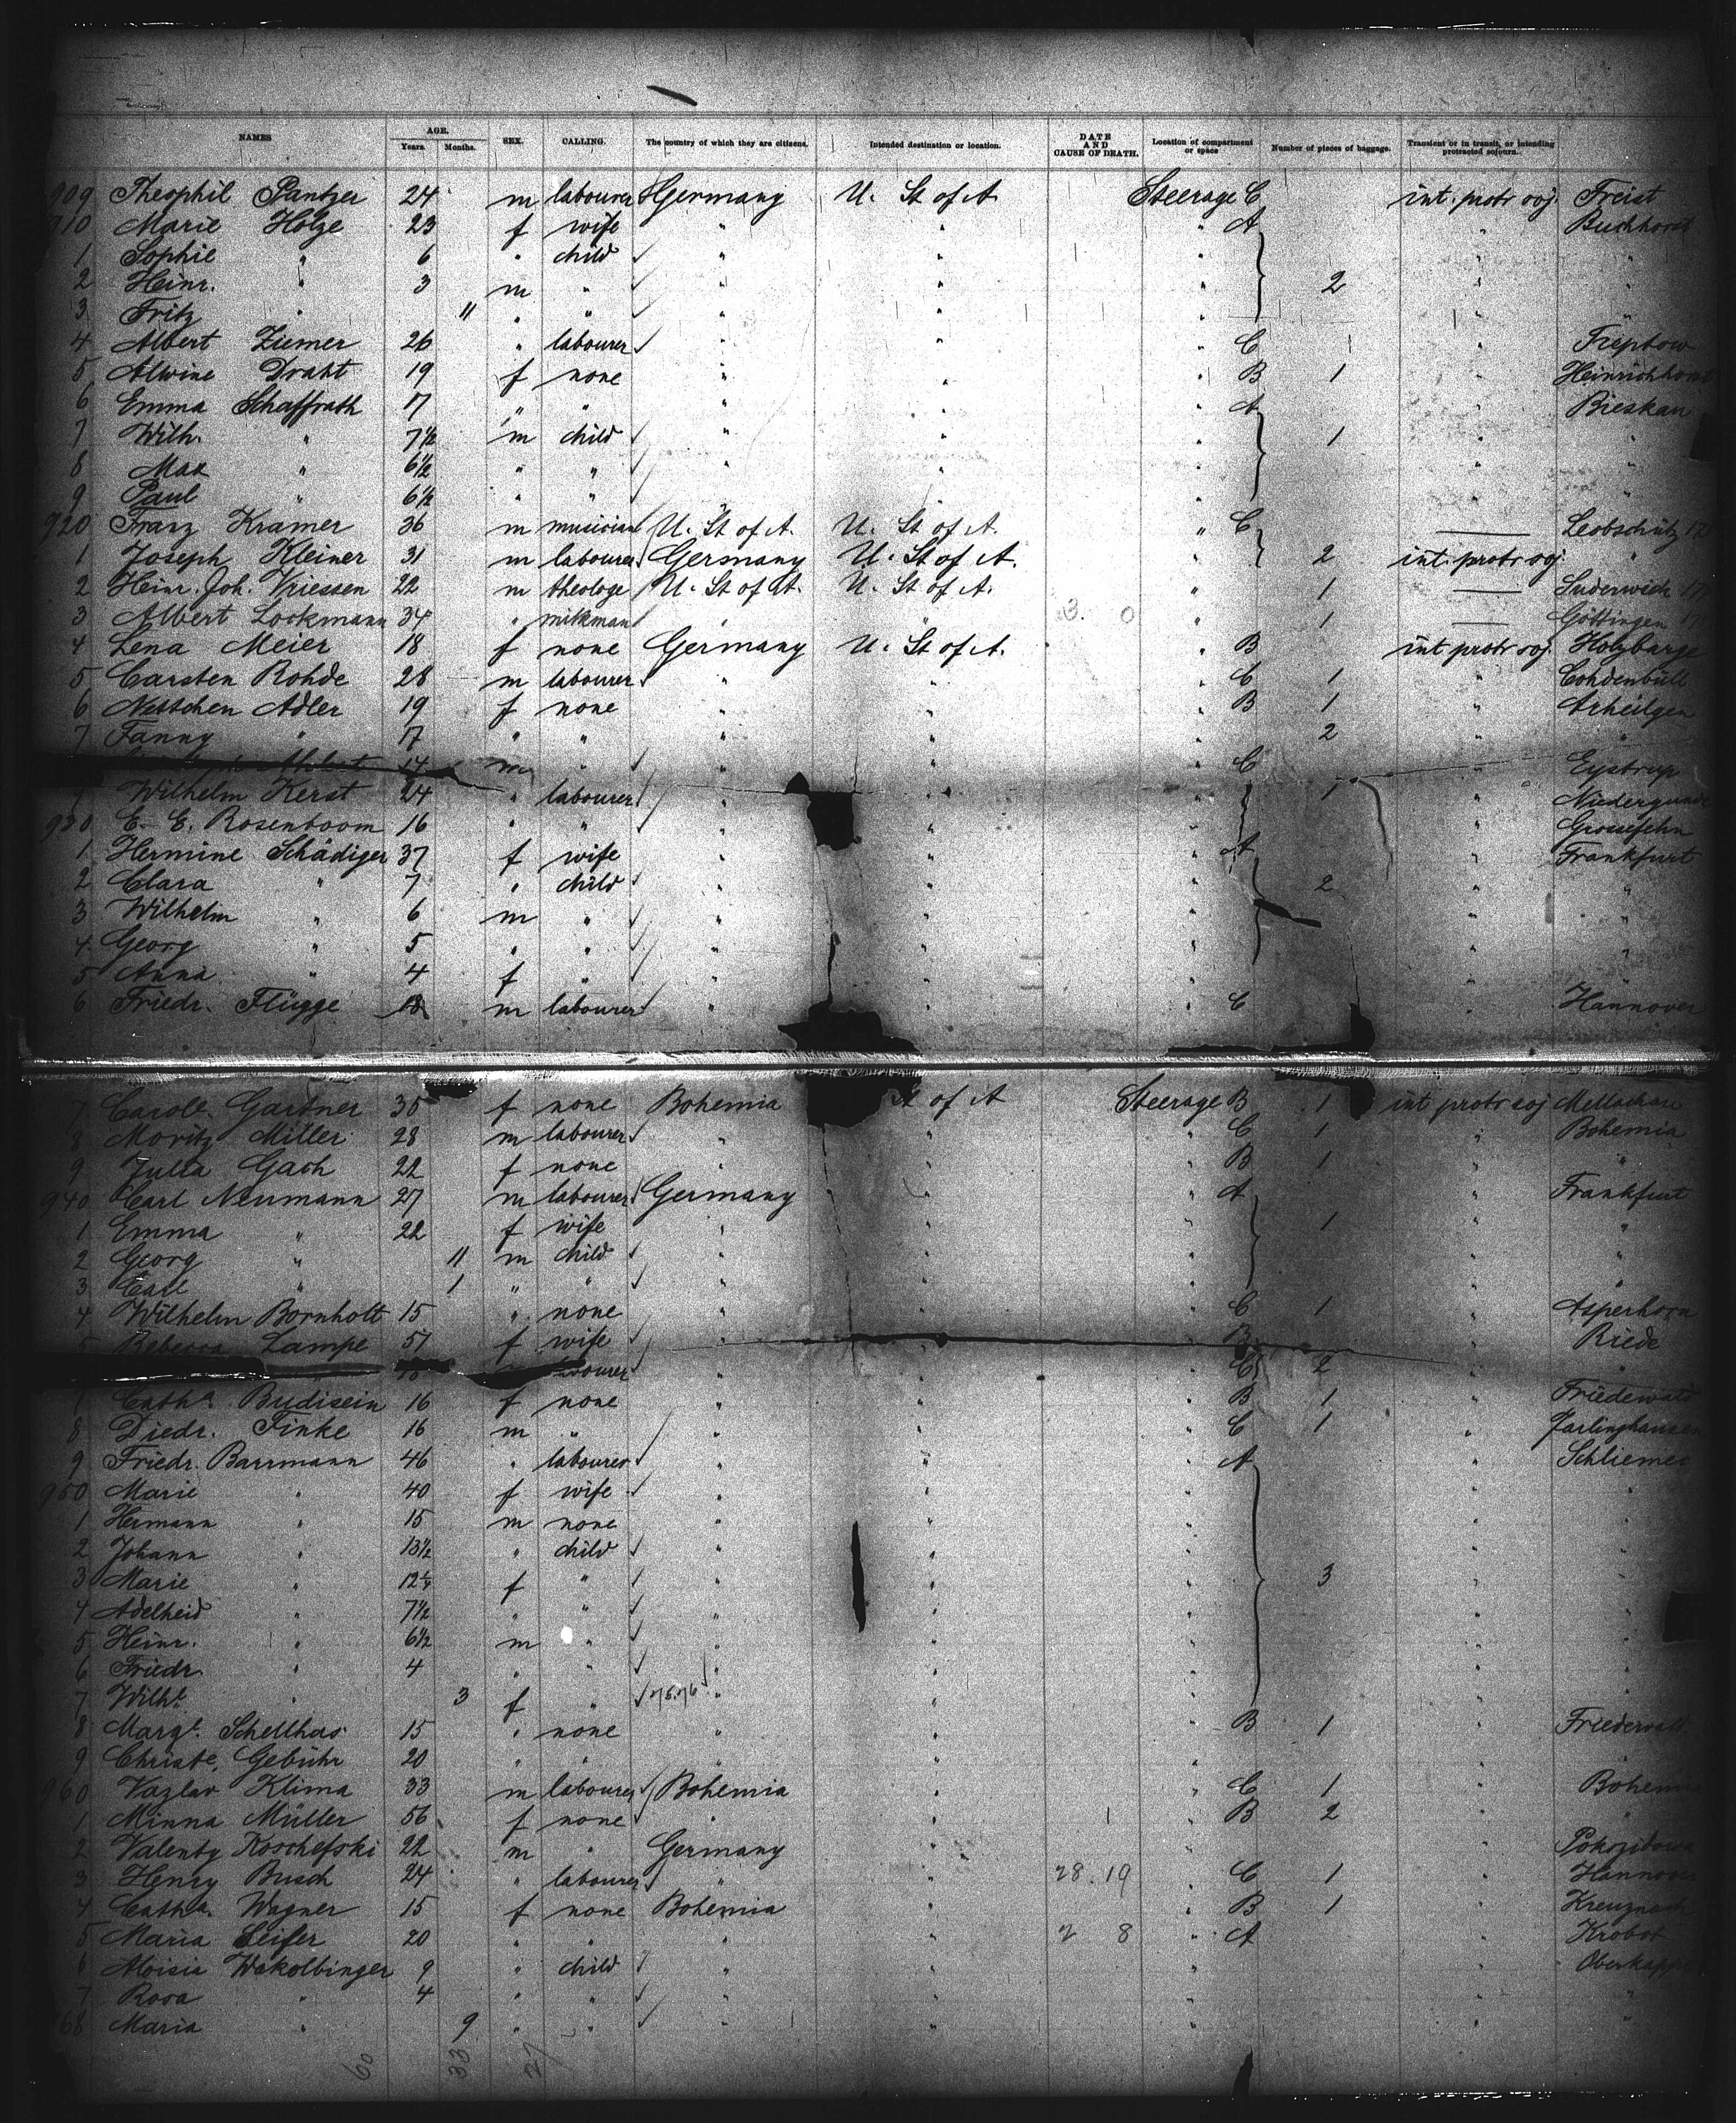 NAMES AGE. Years. Months. SEX. CALLING. The country of which they are citizens. Intended destination or location. DATE AND CAUSE OF DEATH. Location of compartment or space Number of pieces of baggage. Transient or in transit, or intending protracted sojourn.
909 Theophil Pantzer 24 m labourer Germany U. St of A. Steerage C int. protr soj. Freist
910 Marie Holze 23 f wife " " " A " Buchhorst
1 Sophie " 6 " child " " " " "
2 Heinr. " 3 m " " " " 2 " "
3 Fritz " 11 " " " " " " "
4 Albert Ziemer 26 " labourer " " " C 1 " Treptow
5 Alwine Draht 19 f none " " " B 1 " Heinrichhorst
6 Emma Schaffrath 17 " " " " " A " Bieskau
7 Wilh. " 7½ m child " " " 1 " "
8 Max " 6½ " " " " " " "
9 Paul " 6½ " " " " " " "
920 Franz Kramer 36 m musician U. St of A. U. St of A. " C Leobschütz
1 Joseph Kleiner 31 m labourer Germany U. St of A. " 2 int. protr soj. "
2 Heinr. Joh. Vriessen 22 m theologe U. St of A. U. St of A. " 1 Suderwich
3 Albert Lockmann 34 " milkman " " " 1 Göttingen
4 Lena Meier 18 f none Germany U. St of A. " B int protr soj. Holzbarge
5 Carsten Rohde 28 m labourer " " " C 1 " Cohdenbüll
6 Nettchen Adler 19 f none " " " B 1 " Arheilgen
7 Fanny " 17 " " " " " 2 " "
14 m " " " " C " Eystrup
9 Wilhelm Kerst 24 " labourer " " " 1 "
930 E. E. Rosenboom 16 " " " " " " Grossefehn
1 Hermine Schädiger 37 f wife " " " A " Frankfurt
2 Clara " 7 " child " " " 2 " "
3 Wilhelm " 6 m " " " " " "
4 Georg " 5 " " " " " " "
5 Anna " 4 f " " " " " "
6 Friedr. Flügge 18 m labourer " " " C " Hannover
7 Carole. Gartner 35 f none Bohemia St of A Steerage B 1 int protr soj
8 Moritz Miller 28 m labourer " " " C 1 " Bohemia
9 Julia Gach 22 f none " " " B 1 " "
940 Carl Neumann 27 m labourer Germany " " A " Frankfurt
1 Emma " 22 f wife " " " 1 " "
2 Georg " 11 m child " " " " "
3 Carl " 1 " " " " " " "
4 Wilhelm Bornholt 15 " none " " " C 1 " Asperhorn
5 Rebecca Lampe 57 f wife " " " B " Riede
labourer " " " C 2 " "
7 Catha. Budisein 16 f none " " " B 1 " Friedewald
8 Diedr. Finke 16 m " " " " C 1 " Jarlinghausen
9 Friedr. Barrmann 46 " labourer " " " A " Schlieme
950 Marie " 40 f wife " " " " "
1 Hermann " 15 m none " " " " "
2 Johann " 13½ " child " " " " "
3 Marie " 12¼ f " " " " 3 " "
4 Adelheid " 7½ " " " " " " "
5 Heinr. " 6½ m " " " " " "
6 Friedr. " 4 " " " " " " "
7 Wilhe. " 3 f " " " " " "
8 Margt. Schellhas 15 " none " " " B 1 " Friedewald
9 Christe. Gebühr 20 " " " " " " "
960 Vazlav Klima 33 m labourer Bohemia " " C 1 " Bohemia
1 Minna Müller 56 f none " " " B 2 " "
2 Valenty Koschefski 22 m " Germany " " "
3 Henry Busch 24 " labourer " " 28.19 " C 1 " Hannover
4 Catha. Wagner 15 f none Bohemia " " B 1 " Kreuznach
5 Maria Seifer 20 " " " " 2 8 " A " Krobot
6 Aloisia Wakolbinger 9 " child " " " " Oberkappel
7 Rosa " 4 " " " " " " "
968 Maria " 9 " " " " " " "
60 33 27